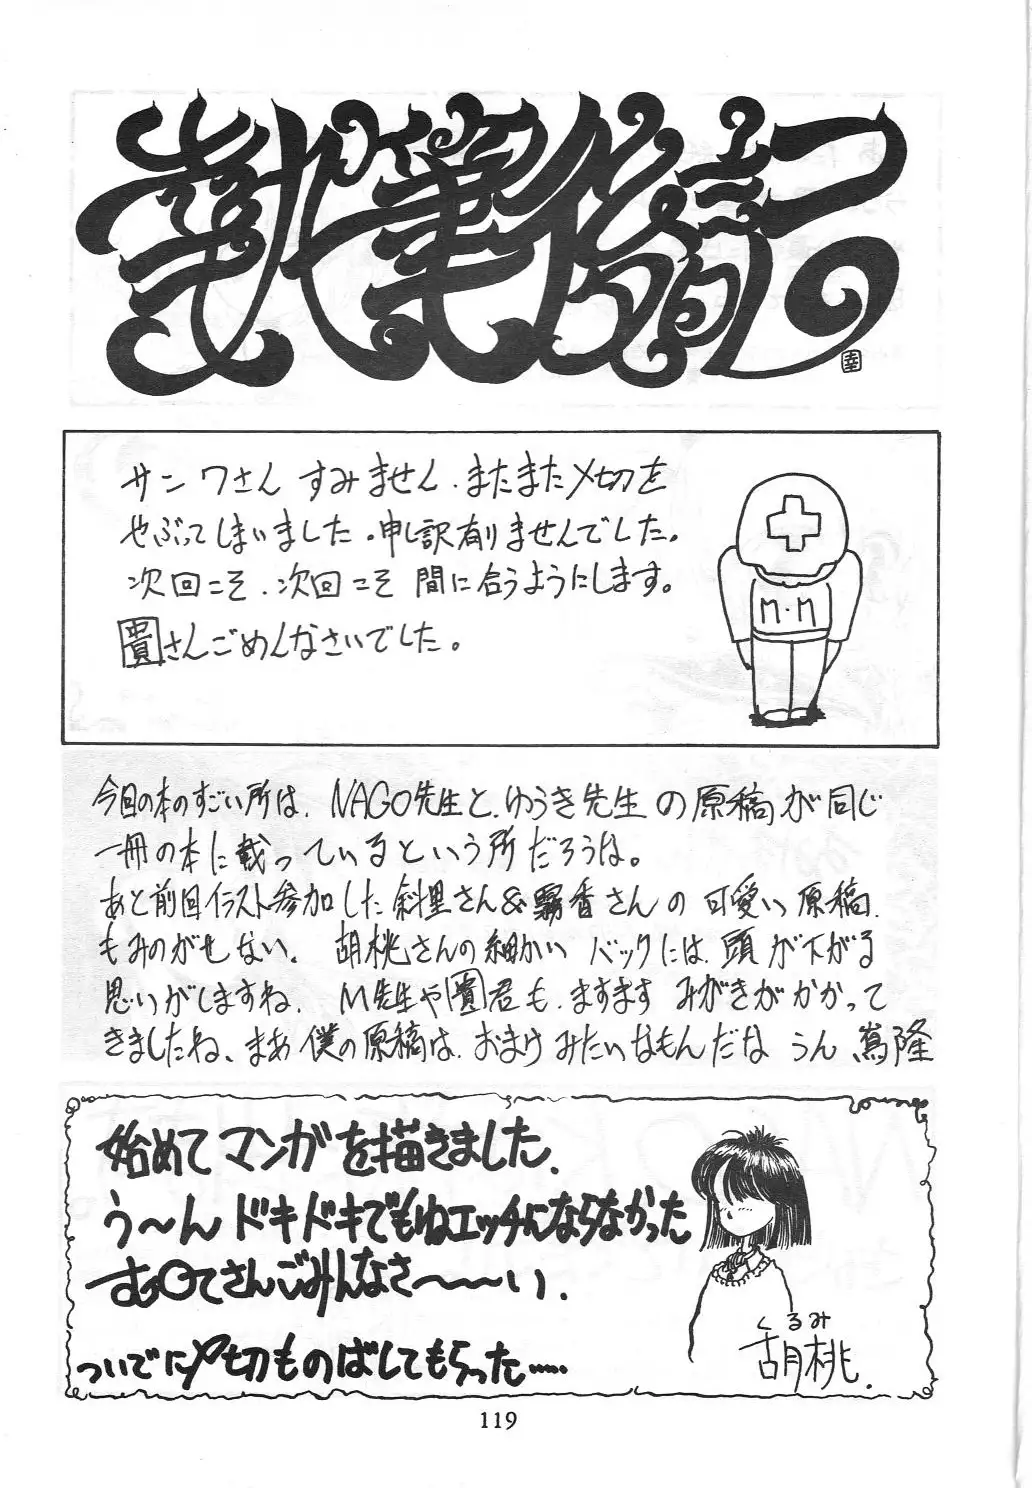 執筆後記
幸
サンワさん すみません.またまた〆切を
やぶってしまいました。申し訳有りませんでした。
次回こそ.次回こそ 間に合うようにします。
貴さんごめんなさいでした。
M・M
今回の本のすごい所は、NAGO先生と、ゆうき先生の原稿が同じ
一冊の本に載っているという所だろうな。
あと前回イラスト参加した斜里さん&霧香さんの可愛い原稿、
もみのがせない。胡桃さんの細かい バックには、頭が下がる
思いがしますね、M先生や貴君も、ますます みがきがかかって
きましたね、まあ 僕の原稿は、おまけみたいなもんだな うん 嵩隆
始めてマンガを描きました.
う〜ん ドキドキでもねエッチにならなかった
す○てさんごみんなさ〜〜〜い.
ついでに〆切ものばしてもらった……
くるみ
胡桃.
119